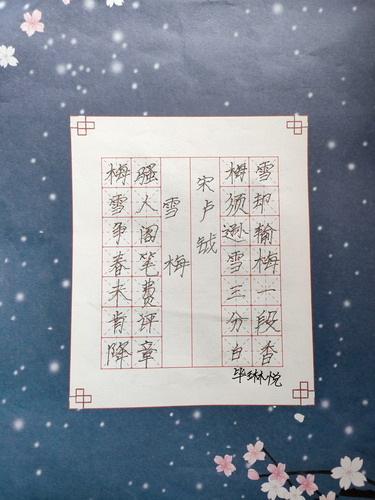 梅雪争春未肯降
骚人阁笔费评章
雪梅
宋卢钺
梅须逊雪三分白
雪却输梅一段香
毕琳悦